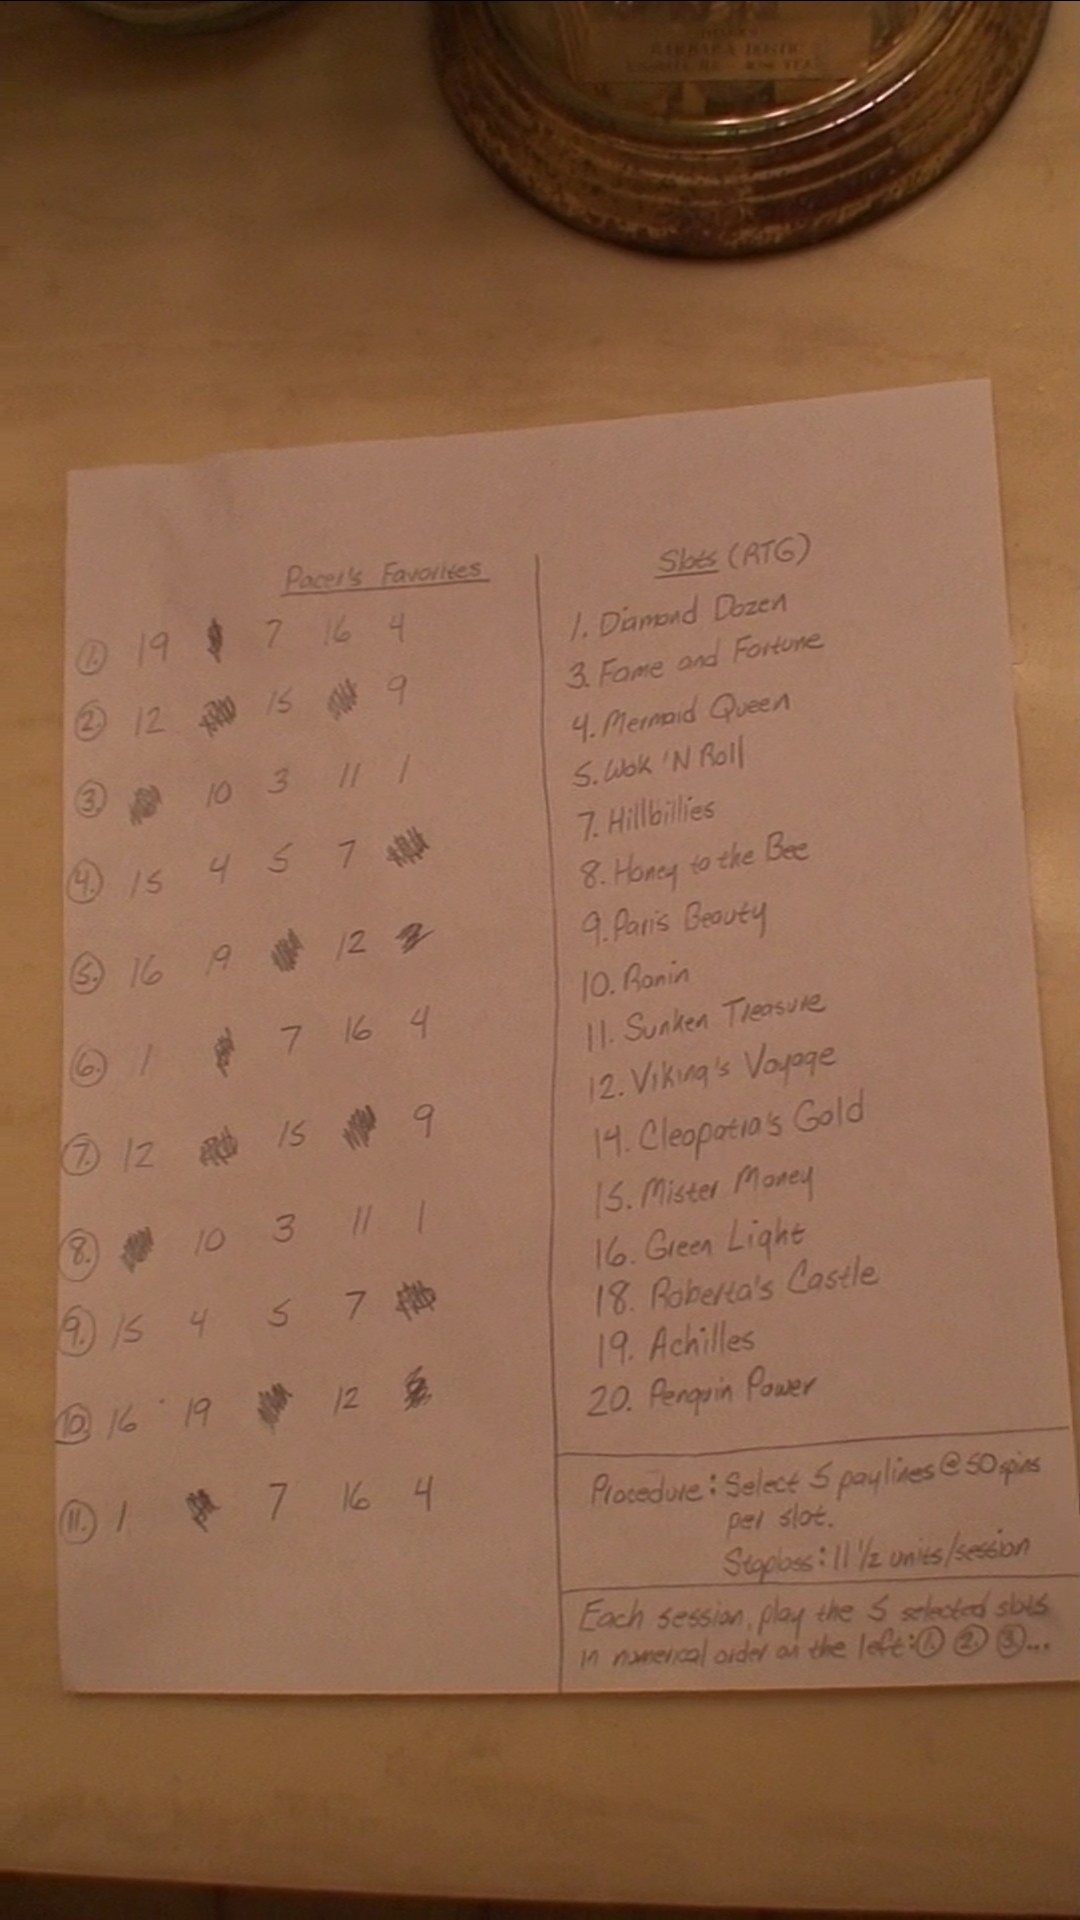 BARBARA
Pacer's Favorites
1. 19 7 16 4
2. 12 15 9
3. 10 3 11 1
4. 15 4 5 7
5. 16 19 12
6. 1 7 16 4
7. 12 15 9
8. 10 3 11 1
9. 15 4 5 7
10. 16 19 12
11. 1 7 16 4
Slots (RTG)
1. Diamond Dozen
3. Fame and Fortune
4. Mermaid Queen
5. Wok 'N Roll
7. Hillbillies
8. Honey to the Bee
9. Paris Beauty
10. Ronin
11. Sunken Treasure
12. Viking's Voyage
14. Cleopatra's Gold
15. Mister Money
16. Green Light
18. Roberta's Castle
19. Achilles
20. Penguin Power
Procedure: Select 5 paylines @ 50 spins
per slot.
Stoploss: 11 1/2 units/session
Each session, play the 5 selected slots
in numerical order on the left: 1. 2. 3. ...